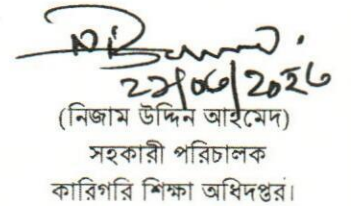 (নিজাম উদ্দিন আহমেদ)
সহকারী পরিচালক
কারিগরি শিক্ষা অধিদপ্তর।